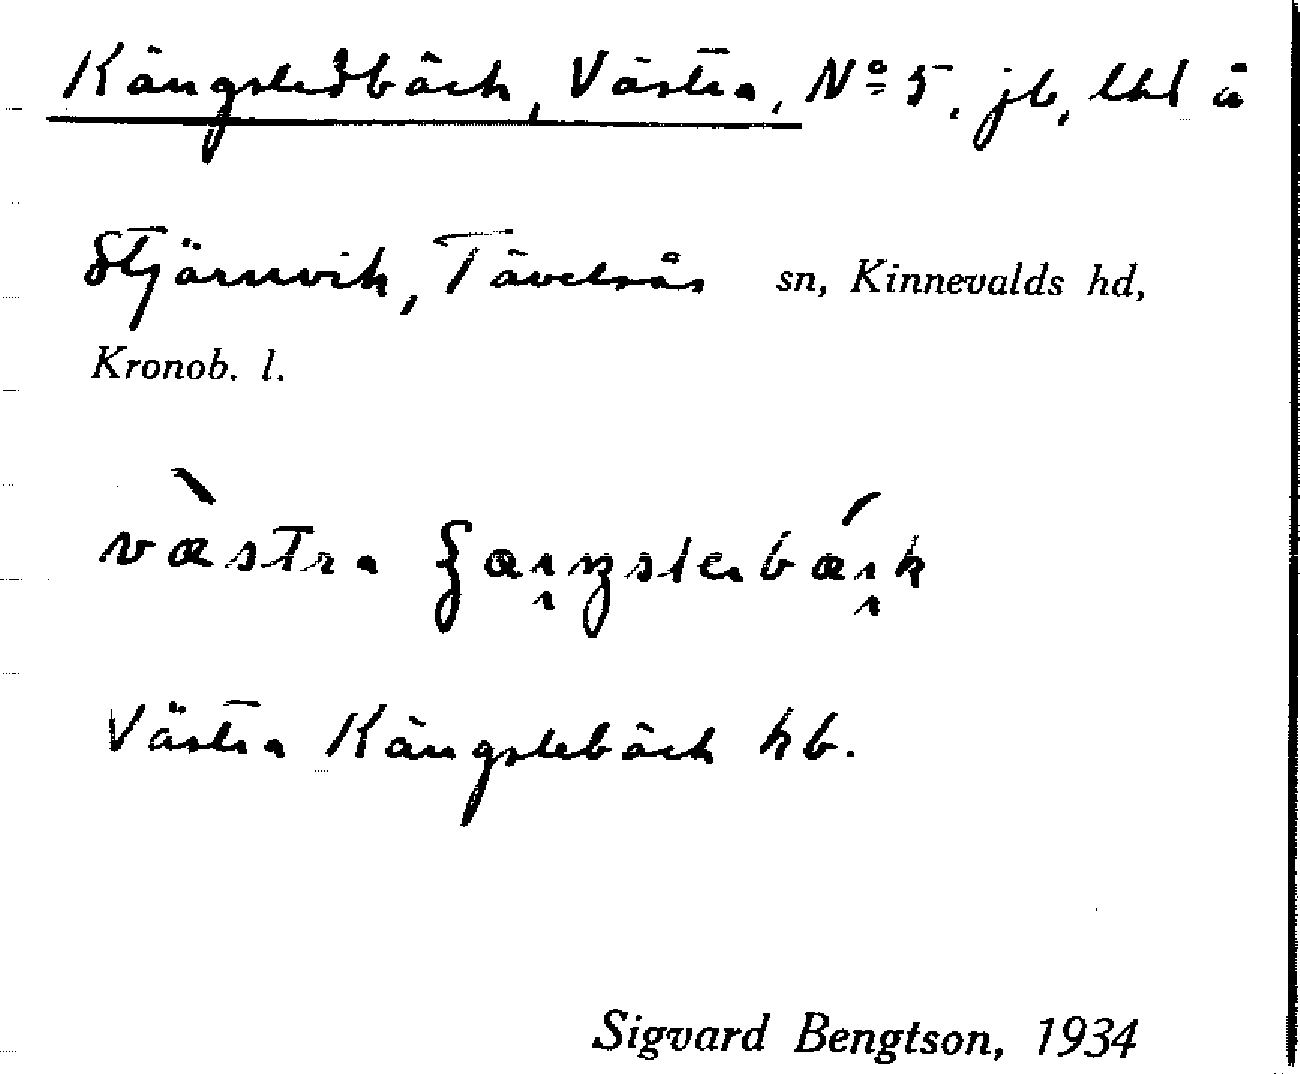 Kängsledbäck, Västra, Nº 5, jb, lhl å
Stjärnvik, Tävelsås sn, Kinnevalds hd,
Kronob. l.
västra
Västra Kängslebäck hb.
Sigvard Bengtson, 1934